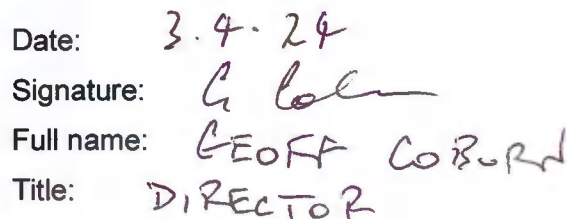 Date: 3.4.24
Signature: G Col
Full name: GEOFF COBURN
Title: DIRECTOR